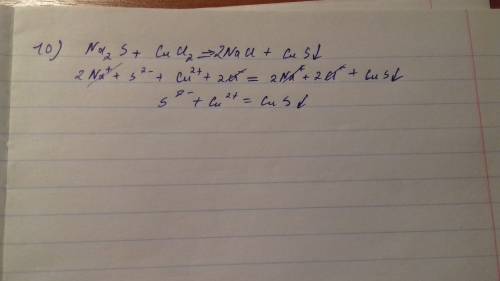 10) Na₂S + CuCl₂ ⇒ 2NaCl + CuS↓
2Na⁺ + S²⁻ + Cu²⁺ + 2Cl⁻ = 2Na⁺ + 2Cl⁻ + CuS↓
S²⁻ + Cu²⁺ = CuS↓